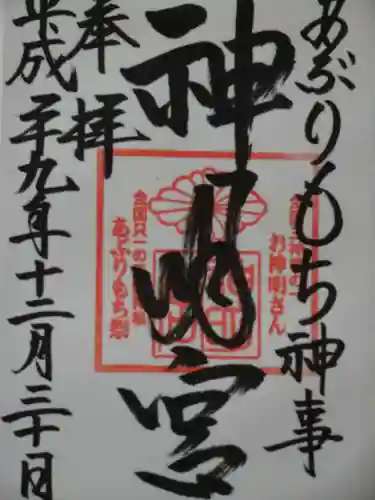 あぶりもち神事
神明宮
奉拝
平成二十九年十二月三十日
お神明さん
全国只一の
あぶりもち祭